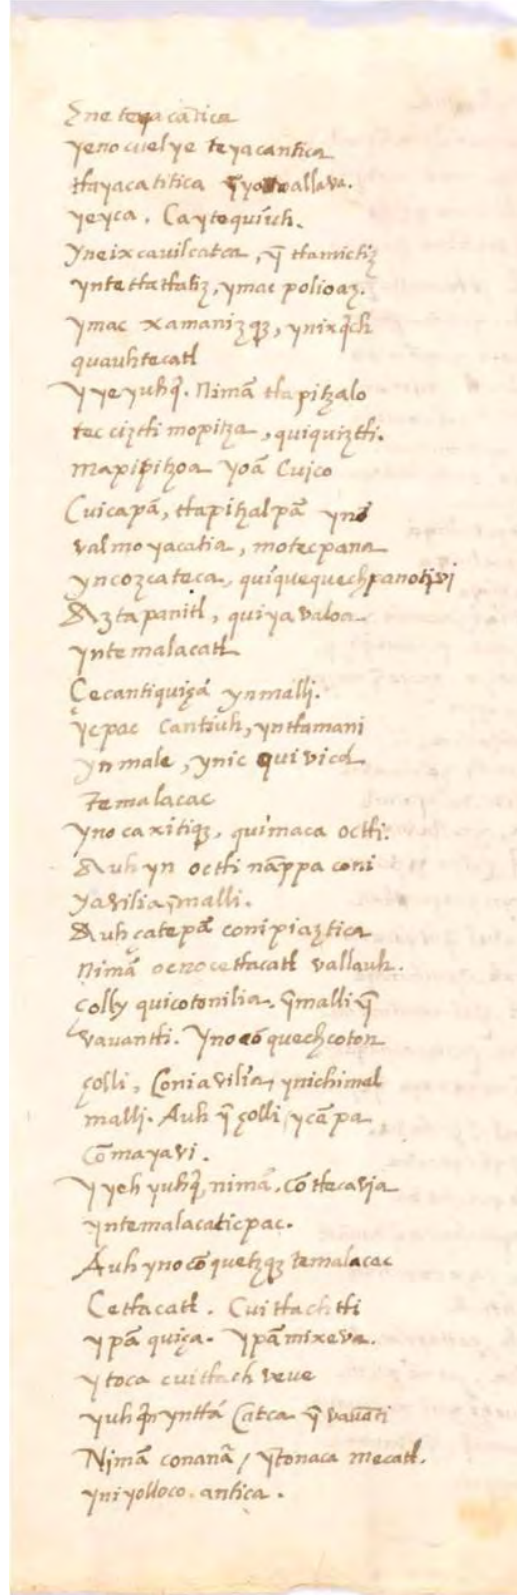 yne teyacātica
yenocuelye teyacantica
tlayacatitica ȳyaoallava.
yeyca, Caytequiuh.
yneixcavilcatca, ȳ tlamictiz
yntetlatlatiz, ymac polioaz.
ymac xamanizqz, ynixqch
quauhtecatl
Yyeyuhq̄. Nimā tlapitzalo
tecciztli mopitza, quiquiztli.
mapipitzoa yoā Cuico
Cuicapā, tlapitzalpā yno
valmoyacatia, motecpana
yncozcateca, quiquequechpanotivi
Aztapanitl, quiyavaloa
yntemalacatl
Çecantiquiçā ynmalli.
ycpac Cantiuh, yntlamani
ynmale, ynic quivica
temalacac
ynocaxitiqz, quimaca octli.
Auh yn octli nāppa coni
yavilia, ȳmalli.
Auh çatepā conipiaztica
Nimā ocnocetlacatl vallauh.
çolly quicotonilia. ȳmalli ȳ
vavantli. Ynocō quechcoton
çolli, Coniavilia, ynichimal
malli. Auh ȳ çolli, ycāpa
Cōmayavi.
Yyeh yuhq̄, nimā, Cōtlecavia
yntemalacaticpac.
Auh ynocōquetzqz temalacac
Cetlacatl. Cuitlachtli
ypā quiça. Ypāmixeva.
ytoca cuitlachveve
yuhqn yntla Catca ȳ vavāti
Nimā conanā, ytonacamecatl.
yniyolloco. antica.